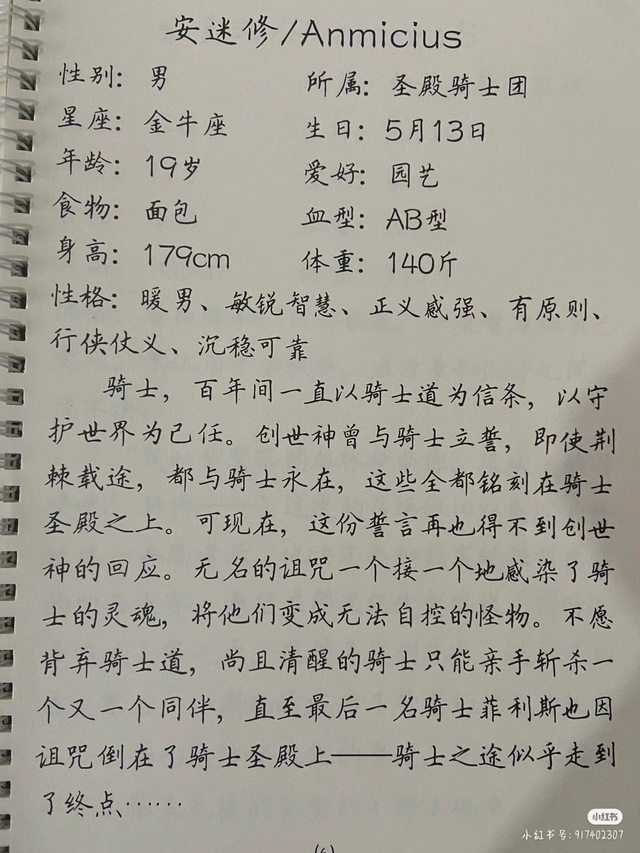 安迷修/Anmicius
性别：男 所属：圣殿骑士团
星座：金牛座 生日：5月13日
年龄：19岁 爱好：园艺
食物：面包 血型：AB型
身高：179cm 体重：140斤
性格：暖男、敏锐智慧、正义感强、有原则、
行侠仗义、沉稳可靠
骑士，百年间一直以骑士道为信条，以守
护世界为己任。创世神曾与骑士立誓，即使荆
棘载途，都与骑士永在，这些全都铭刻在骑士
圣殿之上。可现在，这份誓言再也得不到创世
神的回应。无名的诅咒一个接一个地感染了骑
士的灵魂，将他们变成无法自控的怪物。不愿
背弃骑士道，尚且清醒的骑士只能亲手斩杀一
个又一个同伴，直至最后一名骑士菲利斯也因
诅咒倒在了骑士圣殿上——骑士之途似乎走到
了终点……
小红书
小红书号：917402307